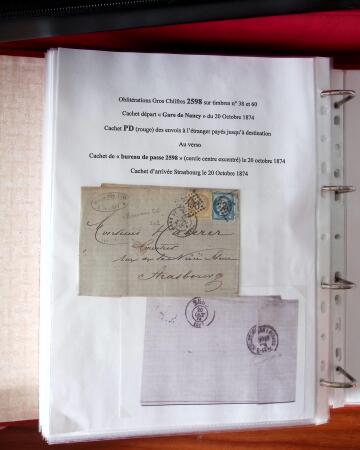 Oblitérations Gros Chiffres 2598 sur timbres n° 38 et 60
Cachet départ « Gare de Nancy » du 20 Octobre 1874
Cachet PD (rouge) des envois à l'étranger payés jusqu'à destination
Au verso
Cachet de « bureau de passe 2598 » (cercle centre excentré) le 20 octobre 1874
Cachet d'arrivée Strasbourg le 20 Octobre 1874
Monsieur
Strasbourg